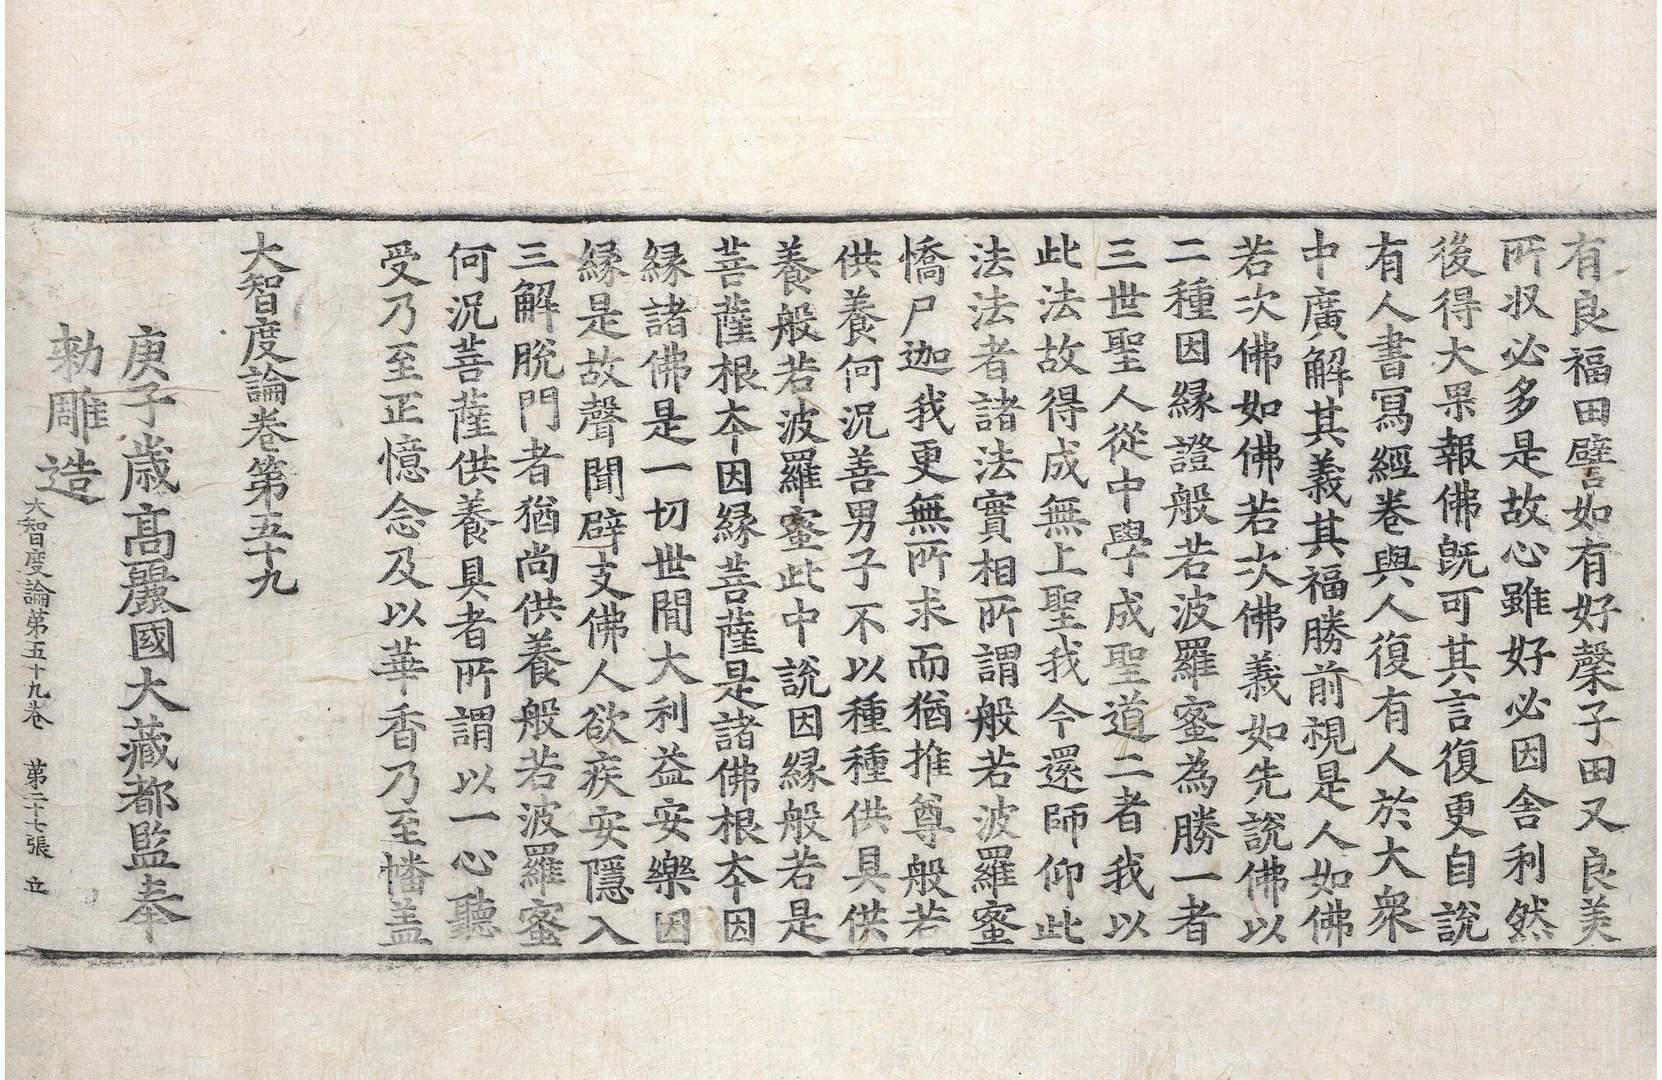 有良福田譬如有好馨子田又良美
所収必多是故心雖好必因舍利然
後得大果報佛旣可其言復更自說
有人書寫經卷與人復有人於大衆
中廣解其義其福勝前視是人如佛
若次佛如佛若次佛義如先說佛以
二種因緣證般若波羅蜜為勝一者
三世聖人從中學成聖道二者我以
此法故得成無上聖我今還師仰此
法法者諸法實相所謂般若波羅蜜
憍尸迦我更無所求而猶推尊般若
供養何況善男子不以種種供具供
養般若波羅蜜此中說因緣般若是
菩薩根夲因緣菩薩是諸佛根夲因
緣諸佛是一切世間大利益安樂因
緣是故聲聞辟支佛人欲疾安隱入
三解脫門者猶尚供養般若波羅蜜
何況菩薩供養具者所謂以一心聽
受乃至正憶念及以華香乃至幡盖
大智度論卷第五十九
庚子歲高麗國大藏都監奉
勅雕造
大智度論第五十九卷 第二十七張 立